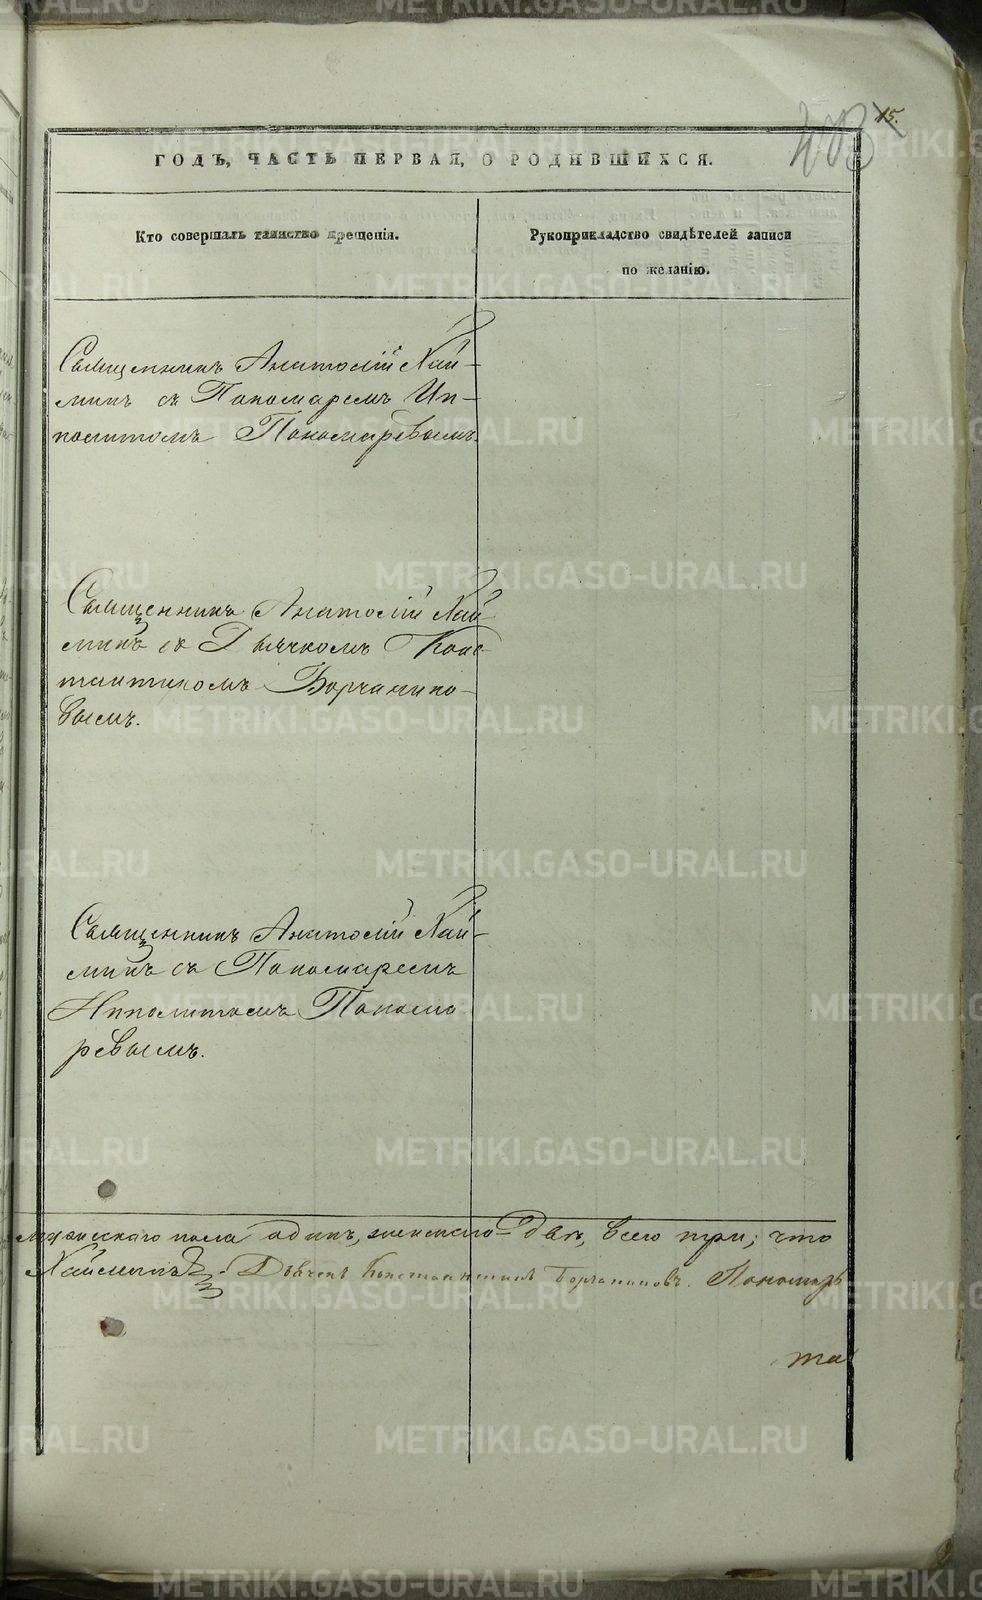 15.
203
ГОДЪ, ЧАСТЬ ПЕРВАЯ, О РОДИВШИХСЯ.
Кто совершалъ таинство крещенія.
Рукоприкладство свидѣтелей записи
по желанію.
Священникъ Анатолій Хай-
минъ съ Пономаремъ Ип-
политомъ Пономаревымъ.
Священникъ Анатолій Хай
минъ съ Дьячкомъ Конс
тантиномъ Борчанино-
вымъ.
Священникъ Анатолій Хай-
минъ съ Пономаремъ
Ипполитомъ Понома
ревымъ.
мужескаго пола одинъ, женскаго двѣ, всего три; что
Хайминъ. Дьячекъ Константинъ Борчаниновъ. Пономарь
METRIKI.GASO-URAL.RU